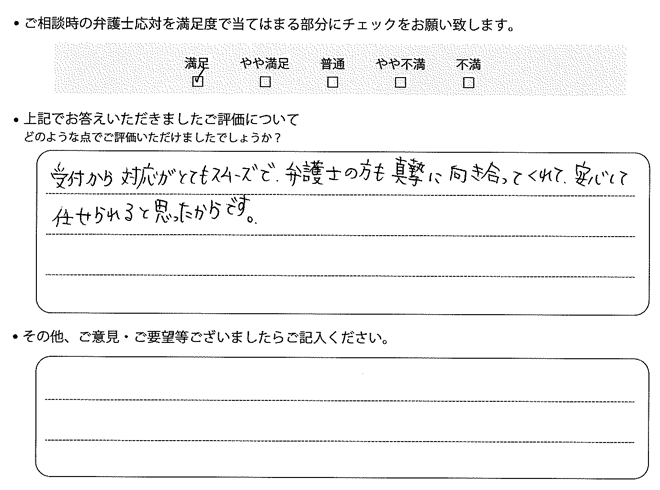 • ご相談時の弁護士応対を満足度で当てはまる部分にチェックをお願い致します。
満足 やや満足 普通 やや不満 不満
☑ □ □ □ □
• 上記でお答えいただきましたご評価について
どのような点でご評価いただけましたでしょうか？
受付から対応がとてもスムーズで、弁護士の方も真摯に向き合ってくれて、安心して
任せられると思ったからです。
• その他、ご意見・ご要望等ございましたらご記入ください。